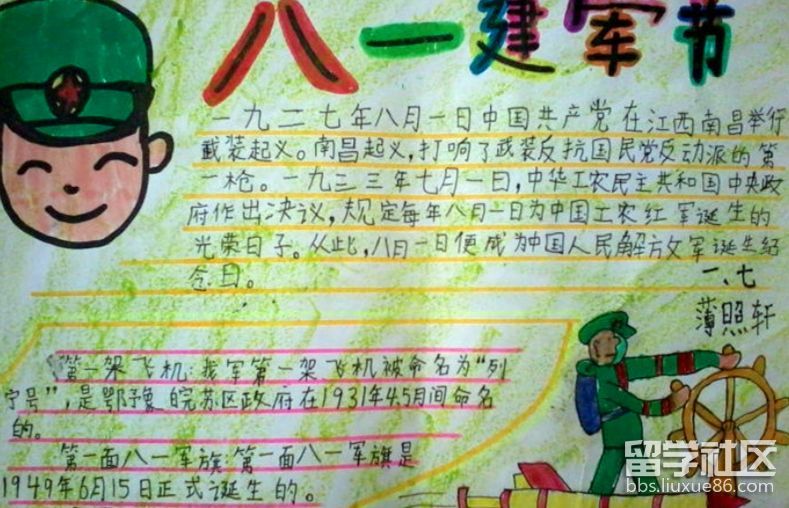 八一建军节
一九二七年八月一日中国共产党在江西南昌举行
武装起义。南昌起义,打响了武装反抗国民党反动派的第
一枪。一九三三年七月一日,中华工农民主共和国中央政
府作出决议,规定每年八月一日为中国工农红军诞生的
光荣日子。从此,八月一日便成为中国人民解放军诞生纪
念日。
一、七
薄照轩
第一架飞机:我军第一架飞机被命名为“列
宁号”,是鄂豫皖苏区政府在1931年4.5月间命名
的。
第一面八一军旗:第一面八一军旗是
1949年6月15日正式诞生的。
留学社区
bbs.liuxue86.com